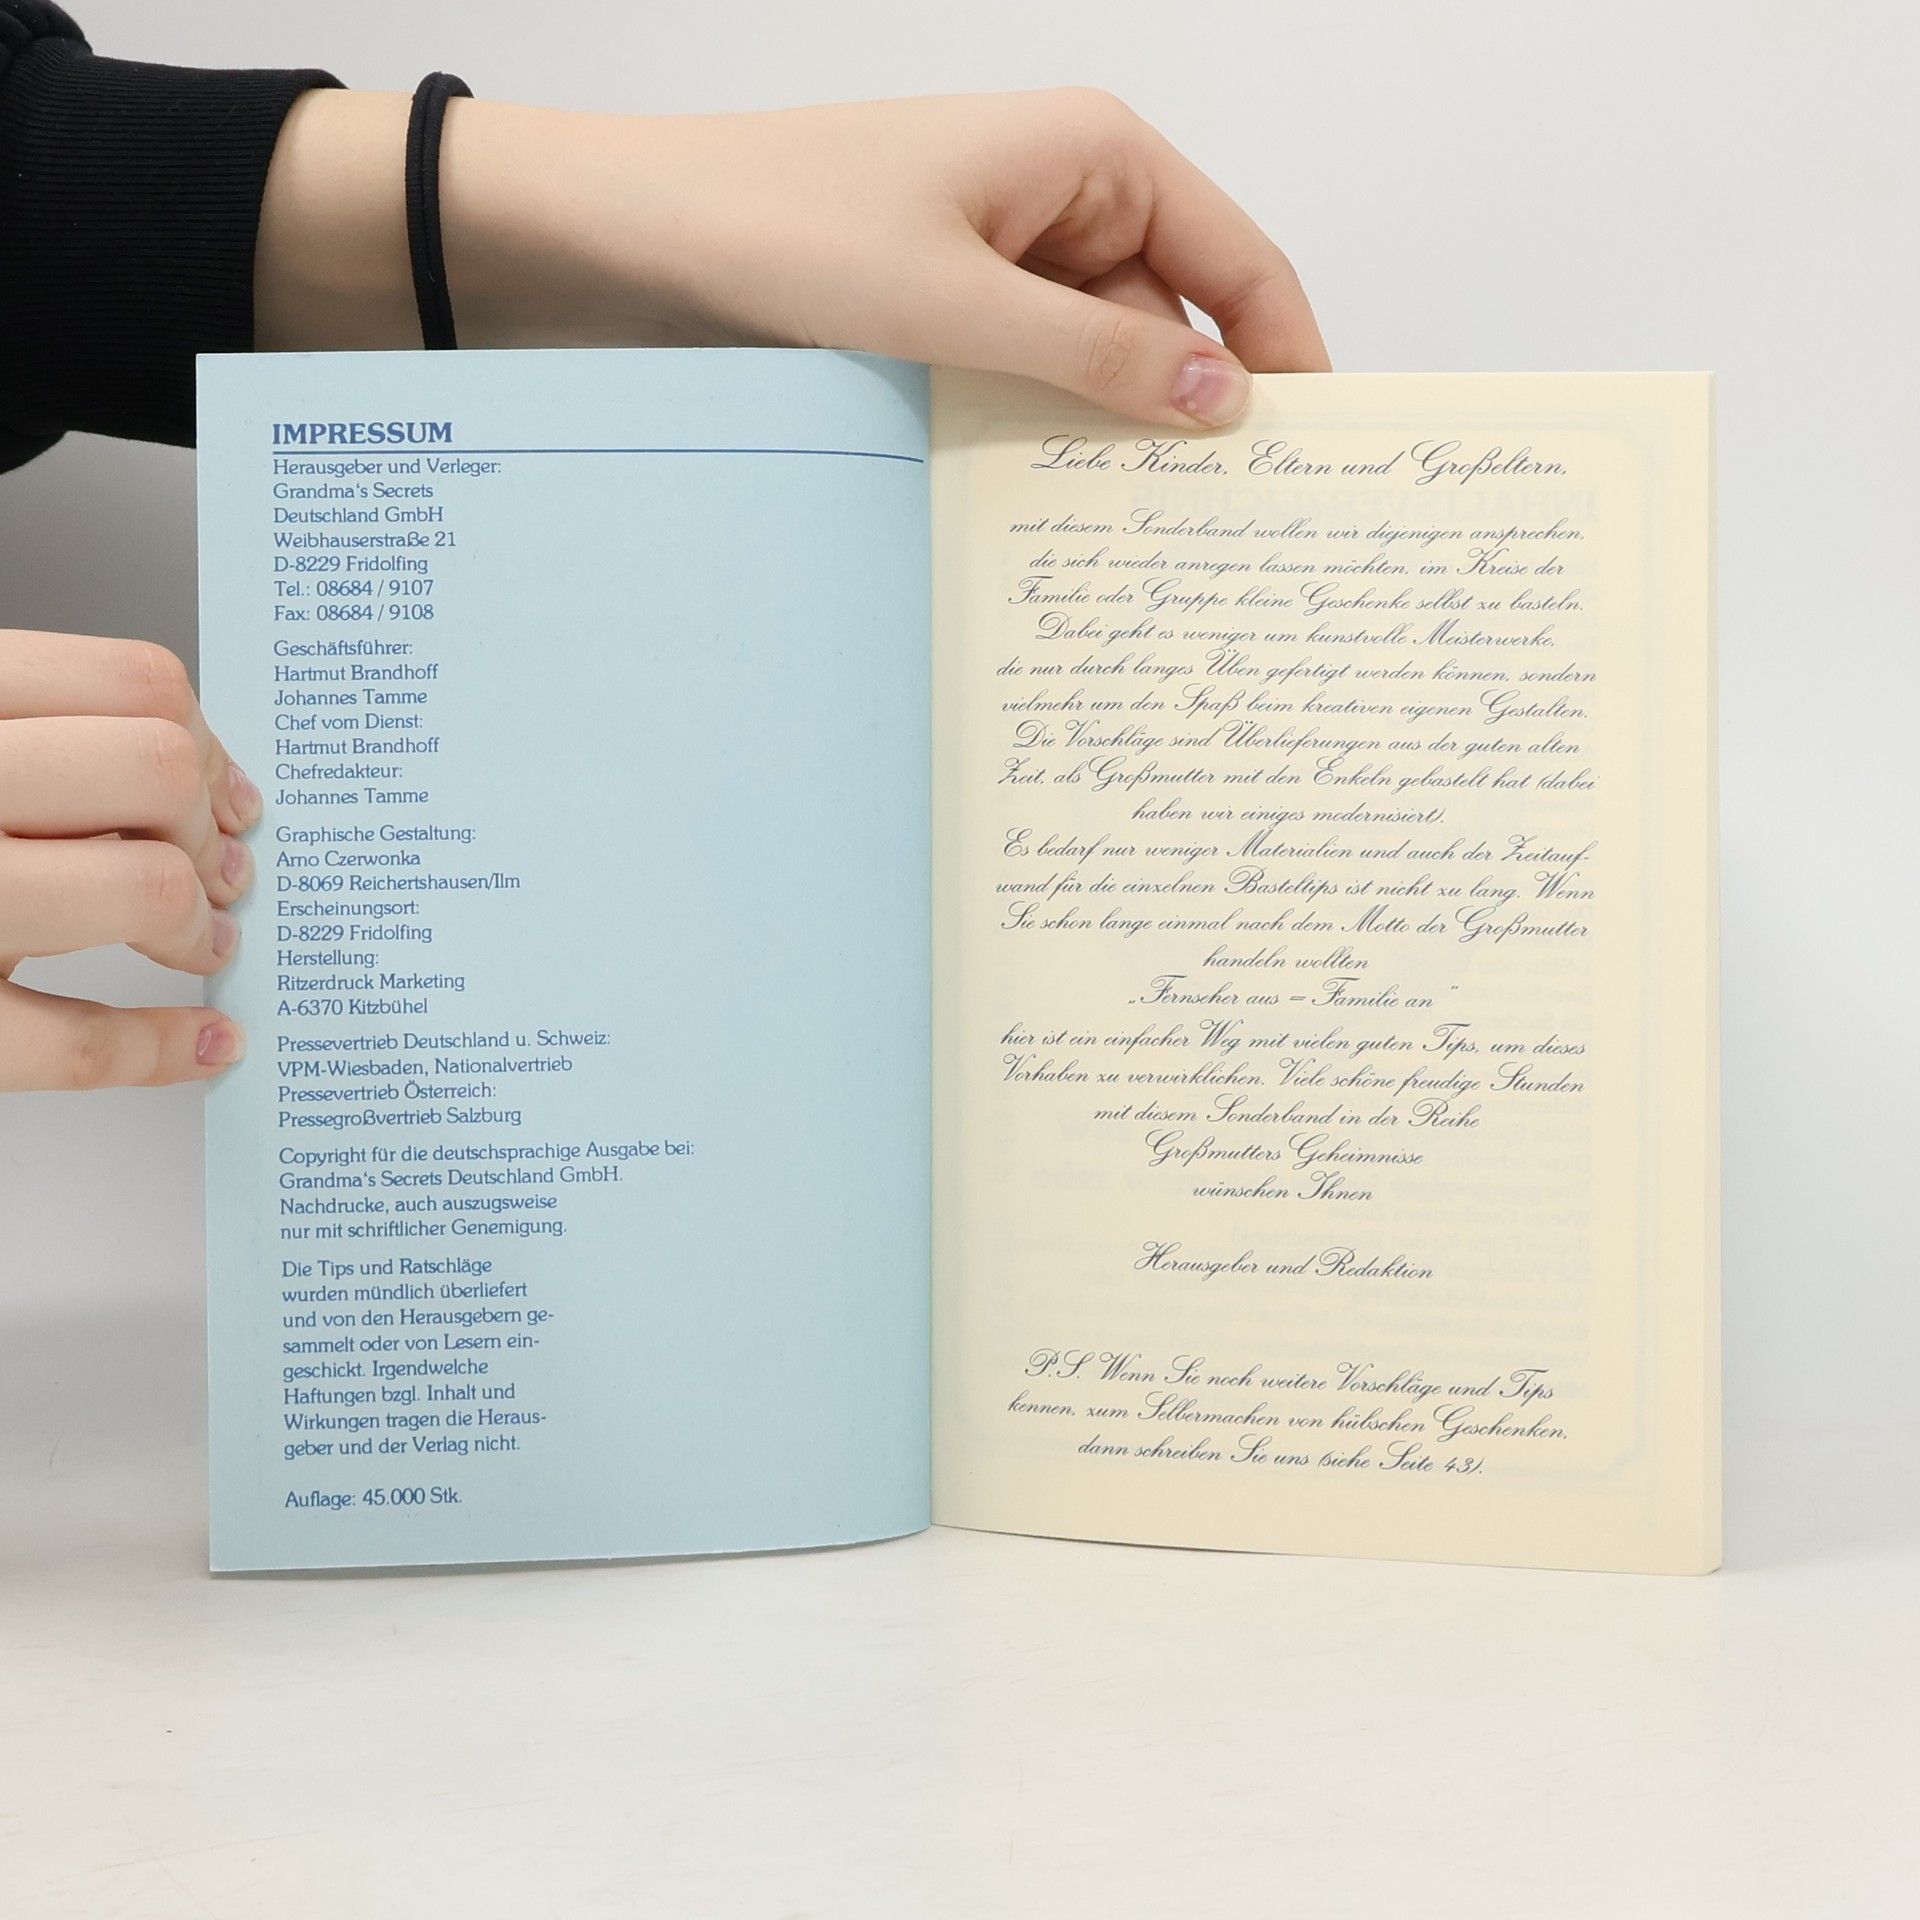 IMPRESSUM
Herausgeber und Verleger:
Grandma's Secrets
Deutschland GmbH
Weibhauserstraße 21
D-8229 Fridolfing
Tel.: 08684 / 9107
Fax: 08684 / 9108
Geschäftsführer:
Hartmut Brandhoff
Johannes Tamme
Chef vom Dienst:
Hartmut Brandhoff
Chefredakteur:
Johannes Tamme
Graphische Gestaltung:
Arno Czerwonka
D-8069 Reichertshausen/Ilm
Erscheinungsort:
D-8229 Fridolfing
Herstellung:
Ritzerdruck Marketing
A-6370 Kitzbühel
Pressevertrieb Deutschland u. Schweiz:
VPM-Wiesbaden, Nationalvertrieb
Pressevertrieb Österreich:
Pressegroßvertrieb Salzburg
Copyright für die deutschsprachige Ausgabe bei:
Grandma's Secrets Deutschland GmbH.
Nachdrucke, auch auszugsweise
nur mit schriftlicher Genemigung.
Die Tips und Ratschläge
wurden mündlich überliefert
und von den Herausgebern ge-
sammelt oder von Lesern ein-
geschickt. Irgendwelche
Haftungen bzgl. Inhalt und
Wirkungen tragen die Heraus-
geber und der Verlag nicht.
Auflage: 45.000 Stk.
Liebe Kinder, Eltern und Großeltern,
mit diesem Sonderband wollen wir diejenigen ansprechen,
die sich wieder anregen lassen möchten, im Kreise der
Familie oder Gruppe kleine Geschenke selbst zu basteln.
Dabei geht es weniger um kunstvolle Meisterwerke,
die nur durch langes Üben gefertigt werden können, sondern
vielmehr um den Spaß beim kreativen eigenen Gestalten.
Die Vorschläge sind Überlieferungen aus der guten alten
Zeit, als Großmutter mit den Enkeln gebastelt hat (dabei
haben wir einiges modernisiert).
Es bedarf nur weniger Materialien und auch der Zeitauf-
wand für die einzelnen Basteltips ist nicht zu lang. Wenn
Sie schon lange einmal nach dem Motto der Großmutter
handeln wollten
„Fernseher aus = Familie an"
hier ist ein einfacher Weg mit vielen guten Tips, um dieses
Vorhaben zu verwirklichen. Viele schöne freudige Stunden
mit diesem Sonderband in der Reihe
Großmutters Geheimnisse
wünschen Ihnen
Herausgeber und Redaktion
P.S. Wenn Sie noch weitere Vorschläge und Tips
kennen, zum Selbermachen von hübschen Geschenken,
dann schreiben Sie uns (siehe Seite 43).